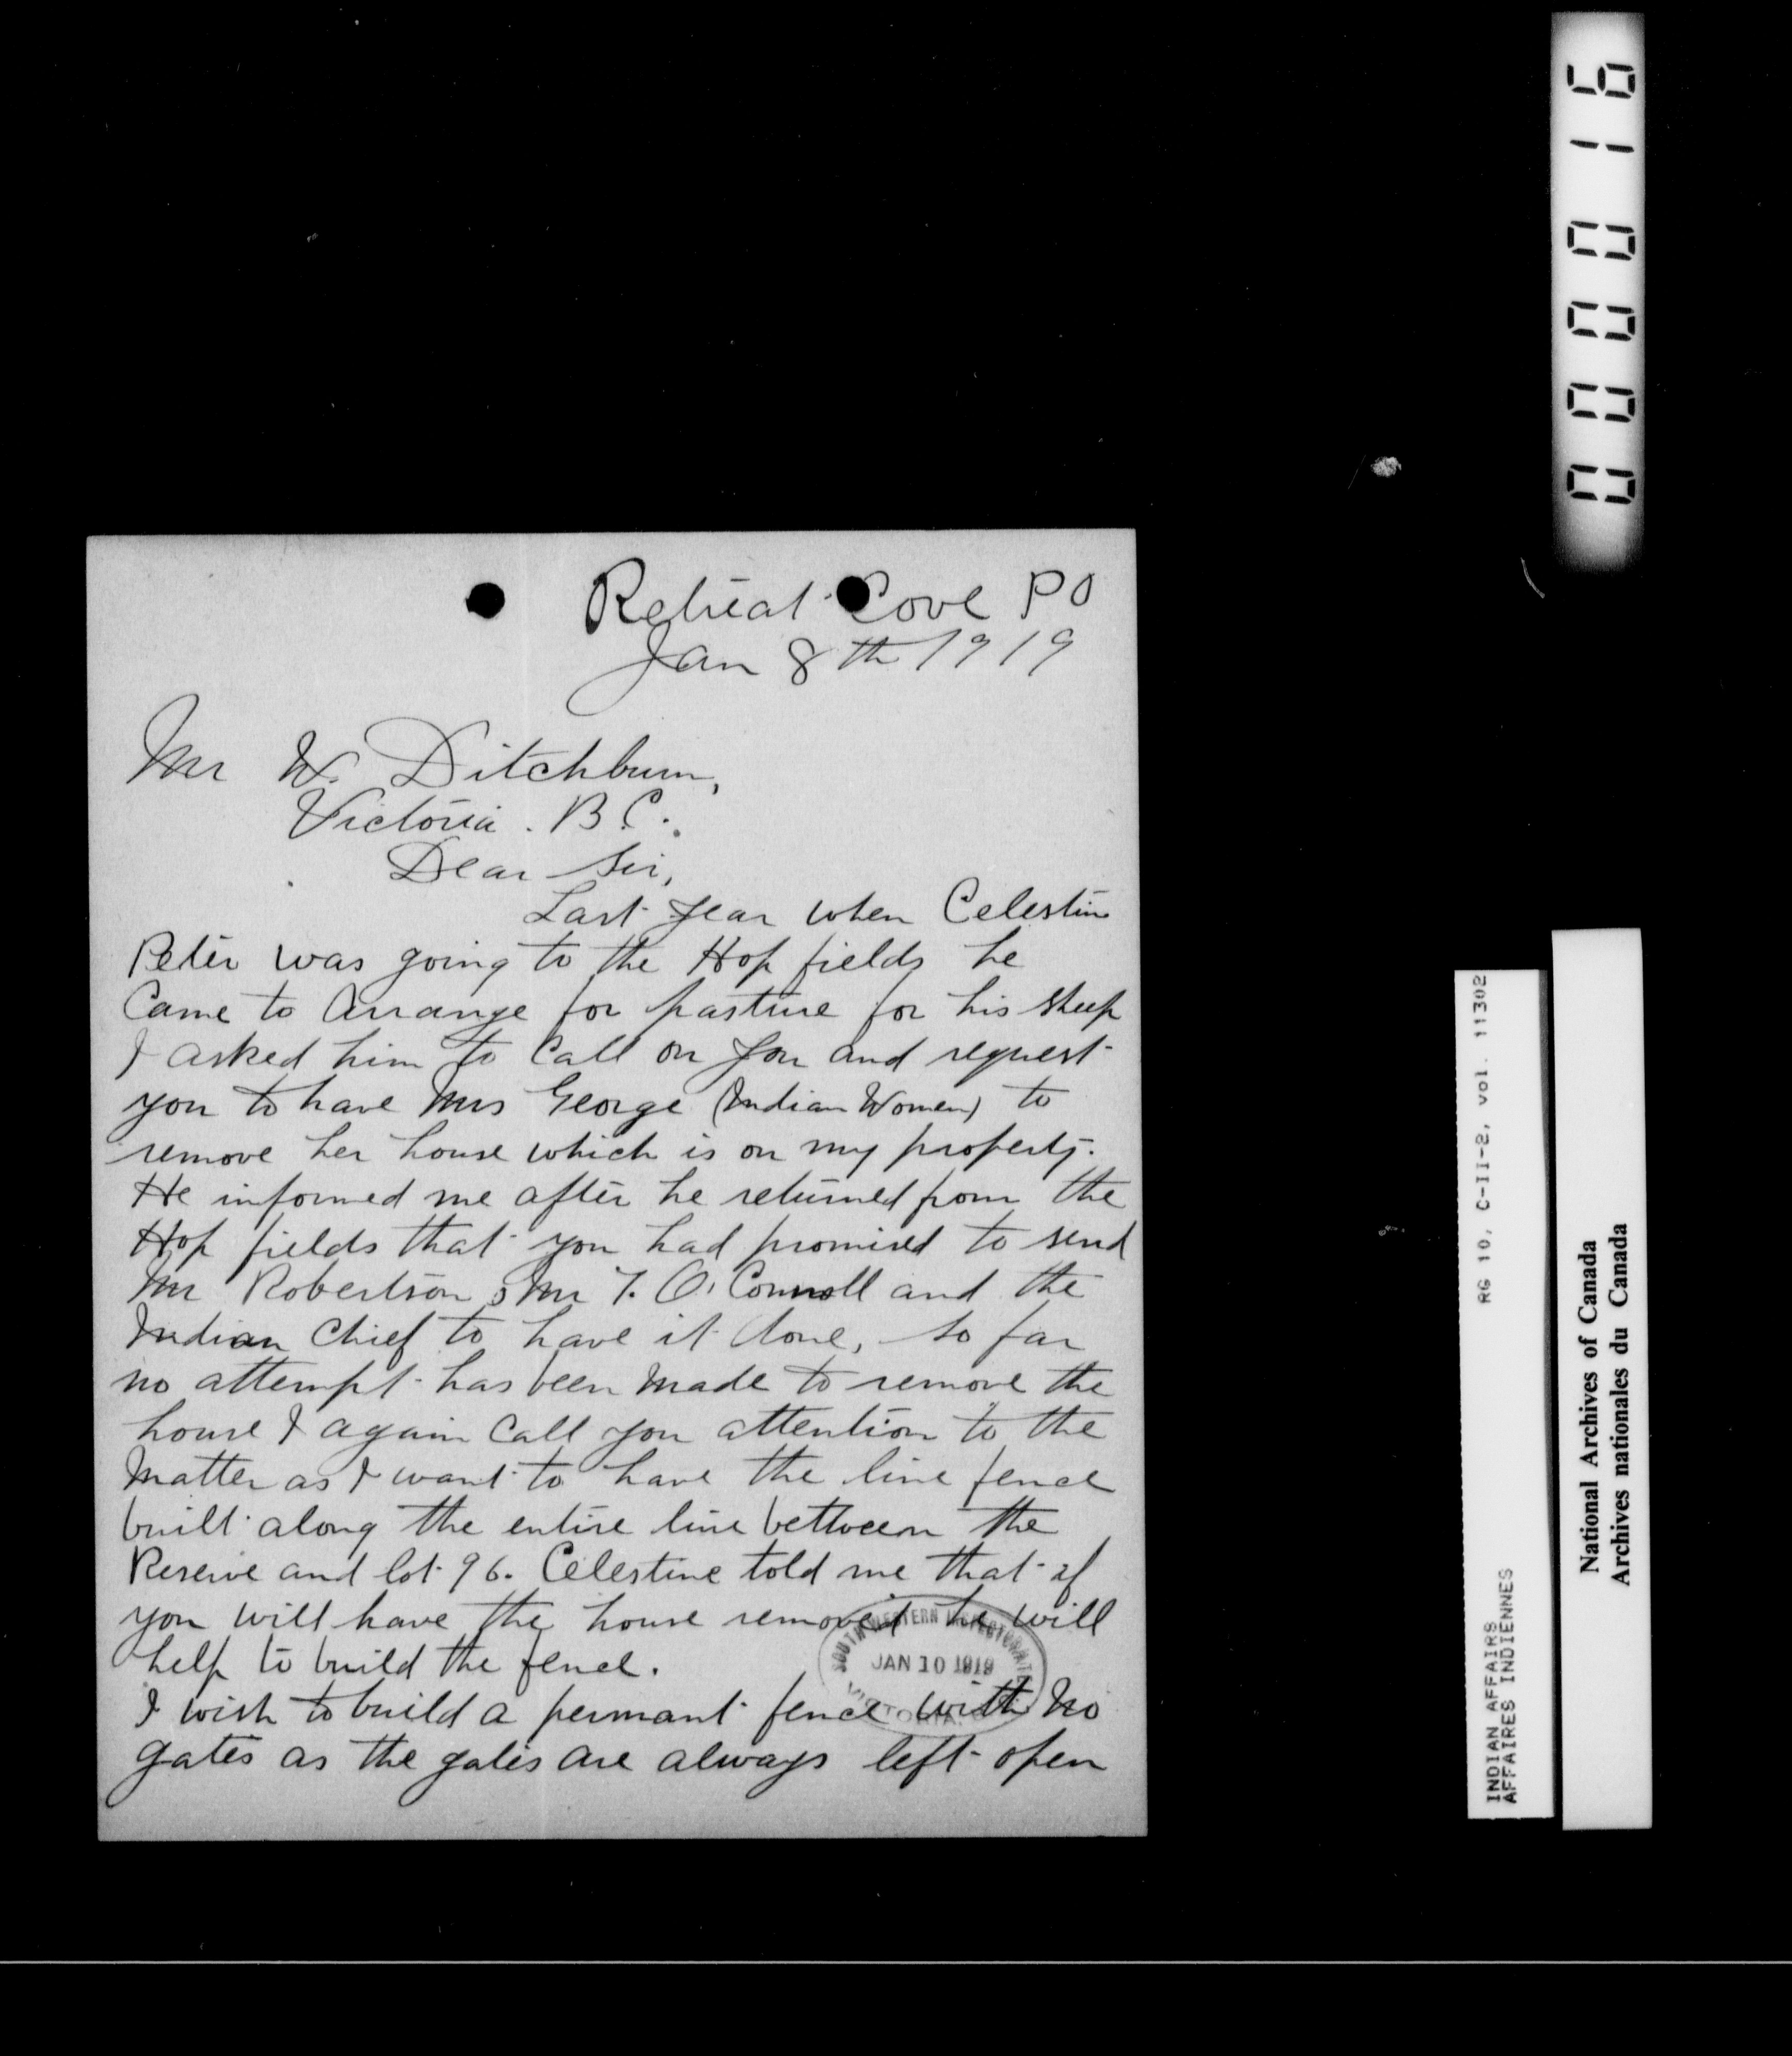 Retreat Cove PO
Jan 8th 1919
Mr W. Ditchburn,
Victoria. B.C.
Dear Sir,
Last year when Celestine
Peter was going to the Hop fields he
Came to Arrange for pasture for his sheep
I asked him to Call on you and request
you to have Mrs George (Indian Women) to
remove her house which is on my property.
He informed me after he returned from the
Hop fields that you had promised to send
Mr Robertson & Mr T. O'Connell and the
Indian Chief to have it done, so far
no attempt has been made to remove the
house I again call you attention to the
Matter as I want to have the line fence
built along the entire line bettween the
Reserve and lot 96. Celestine told me that if
you will have the house removed he will
help to build the fence.
I wish to build a permant fence with no
gates as the gates are always left open
SOUTH WESTERN INSPECTORATE
JAN 10 1919
VICTORIA,
000016
RG 10, C-II-2, vol. 11302
INDIAN AFFAIRS
AFFAIRES INDIENNES
National Archives of Canada
Archives nationales du Canada